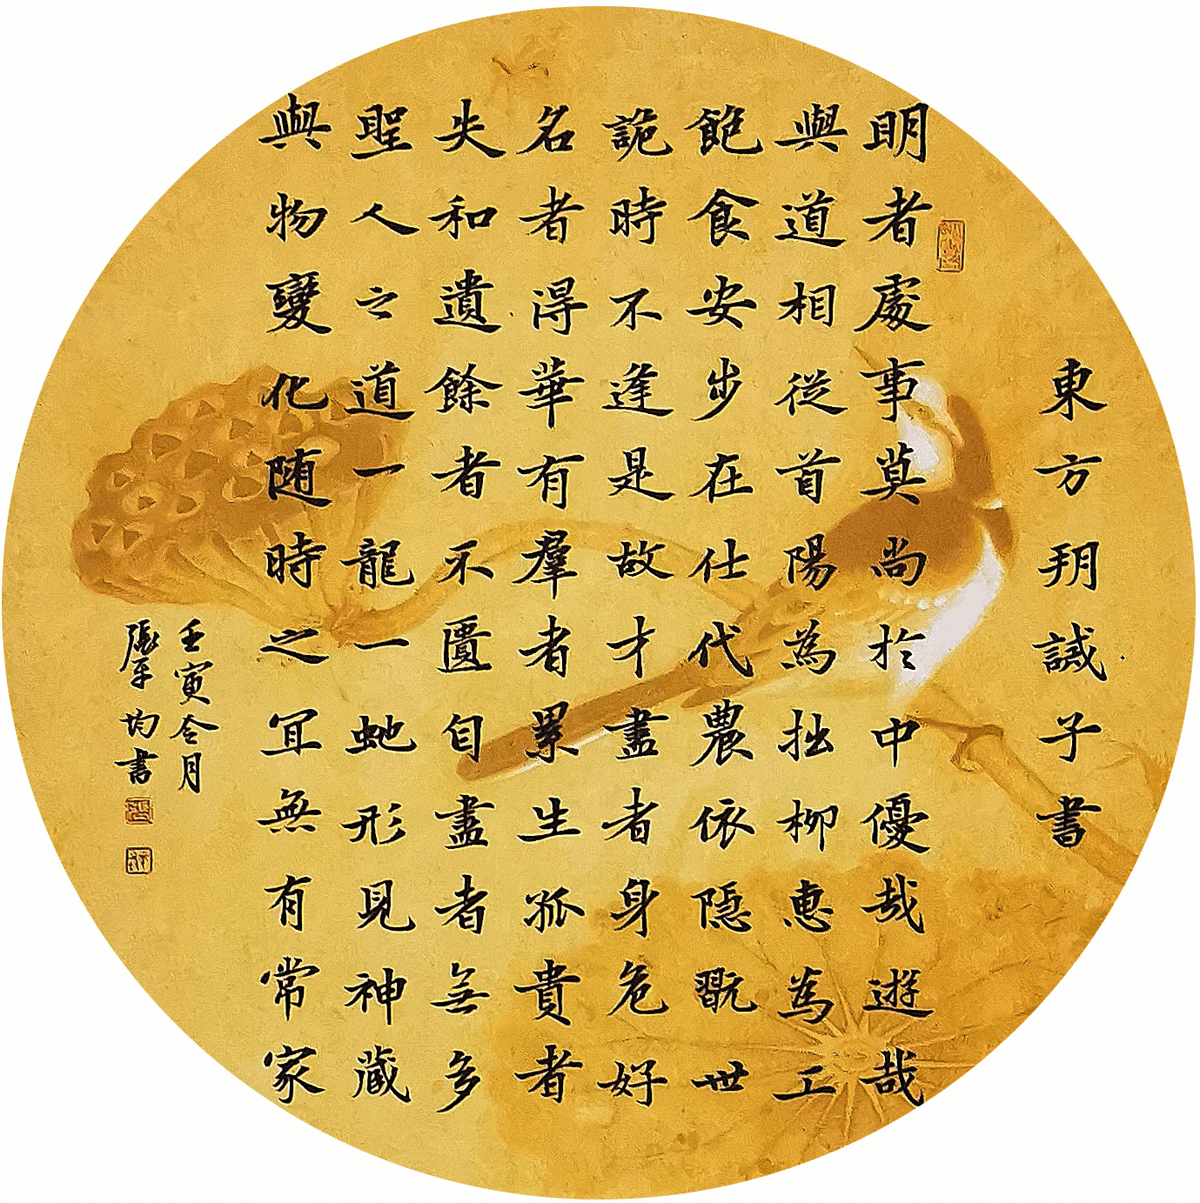 東方朔誡子書
明者處事莫尚於中優哉遊哉
與道相從首陽為拙柳惠為工
飽食安步在仕代農依隱翫世
詭時不逢是故才盡者身危好
名者得華有羣者累生孤貴者
失和遺餘者不匱自盡者無多
聖人之道一龍一虵形見神藏
與物變化随時之冝無有常家
壬寅仒月
張軍均書